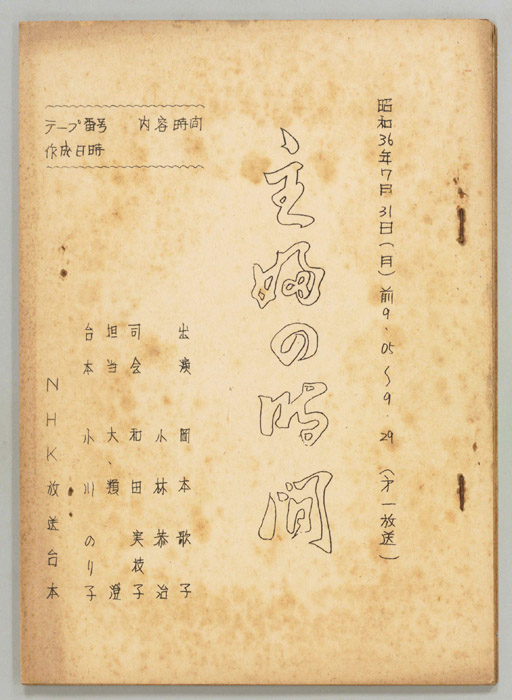 昭和36年7月31日(月) 前9.05〜9.29 (才一放送)
主婦の時間
テープ番号 内容時間
作成日時
出演 岡本歌子
小林恭治
司会 和田実枝子
担当 大類 澄
台本 小川のり子
NHK放送台本